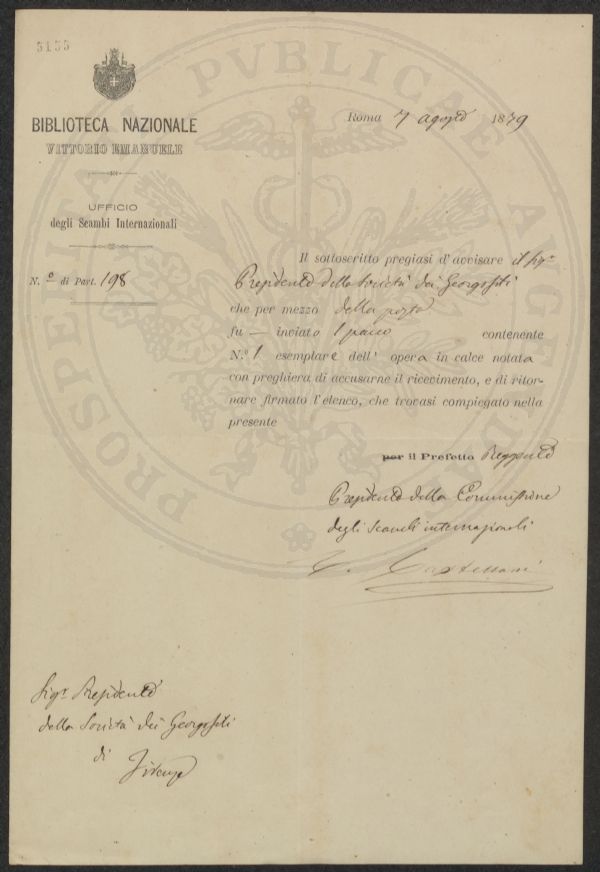 5155
BIBLIOTECA NAZIONALE
VITTORIO EMANUELE
UFFICIO
degli Scambi Internazionali
N.º di Part. 198
PROSPERITATI PVBLICAE AVGENDAE
Roma 7 agosto 1879
Il sottoscritto pregiasi d'avvisare il Sigr
Presidente della Società dei Georgofili
che per mezzo della posta
fu — inviato 1 pacco contenente
N.º 1 esemplare dell' opera in calce notata
con preghiera di accusarne il ricevimento, e di ritor-
nare firmato l'elenco, che trovasi compiegato nella
presente
per il Prefetto Reggente
Presidente della Commissione
degli scambi internazionali
C. Castellani
Sigr Presidente
della Società dei Georgofili
di
Firenze